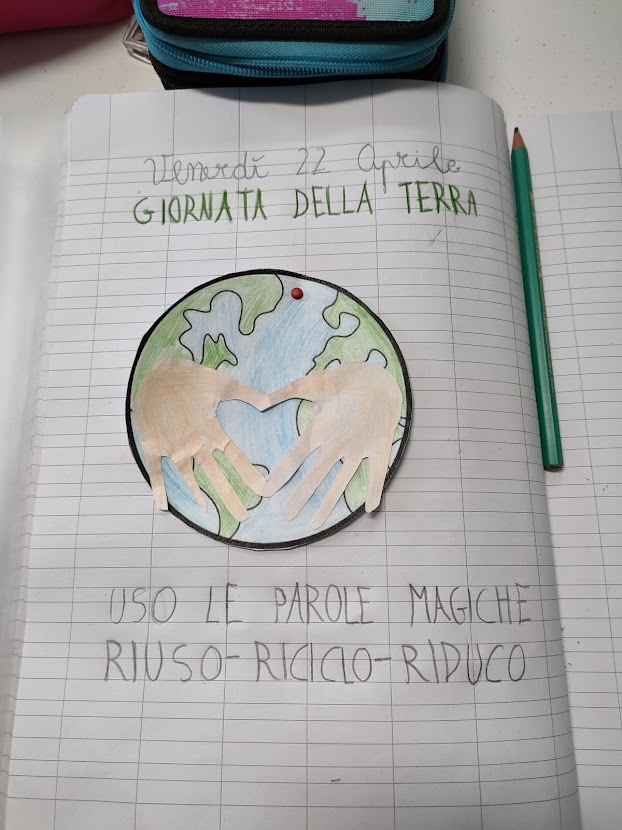 Venerdì 22 Aprile
GIORNATA DELLA TERRA
USO LE PAROLE MAGICHE
RIUSO-RICICLO-RIDUCO